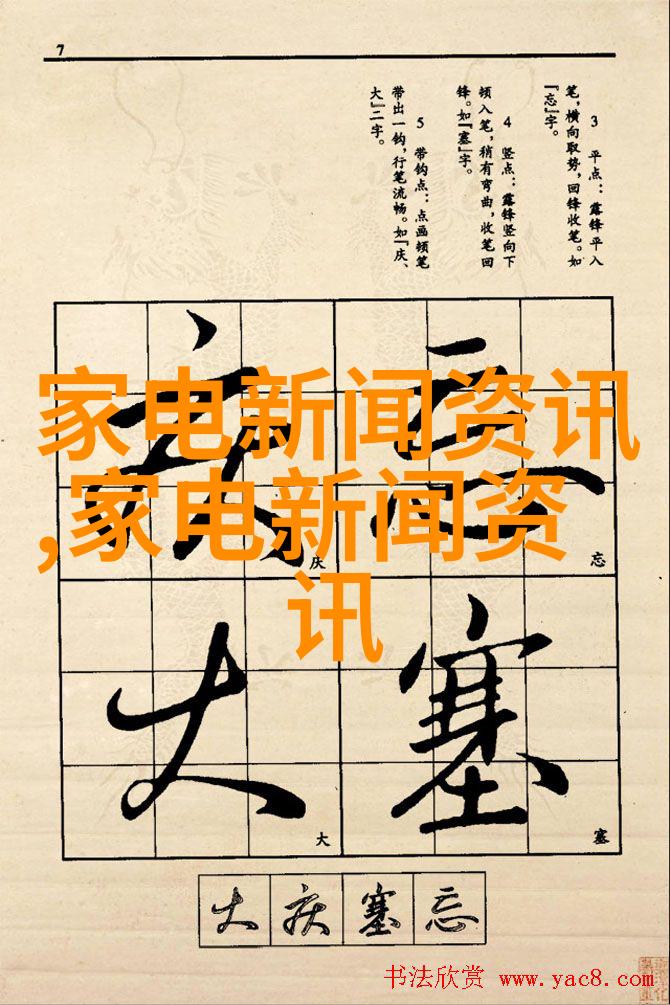 7
3 平点：露锋平入
笔，横向取势，回锋收笔。如
『忘』字。
4 竖点：露锋竖向下
顿入笔，稍有弯曲，收笔回
锋。如『塞』字。
5 带钩点：点画顿笔
带出一钩，行笔流畅。如『庆、
大』二字。
家电新闻资讯
,家电新闻资
讯
忘
庆
塞
大
忘
庆
塞
大
大 庆 塞 忘
书法欣赏 www.yac8.com